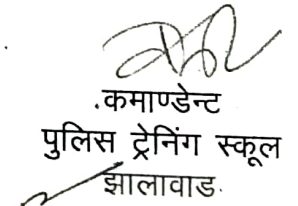 कमाण्डेन्ट
पुलिस ट्रेनिंग स्कूल
झालावाड